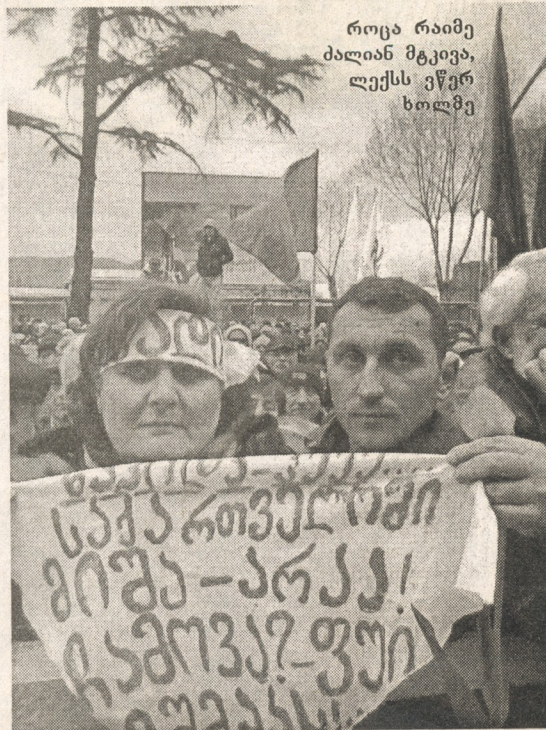 როცა რაიმე
ძალიან მტკივა,
ლექსს ვწერ
ხოლმე
საქართველოში
მიშა – არაა!
ჩამოვა? – ფუი